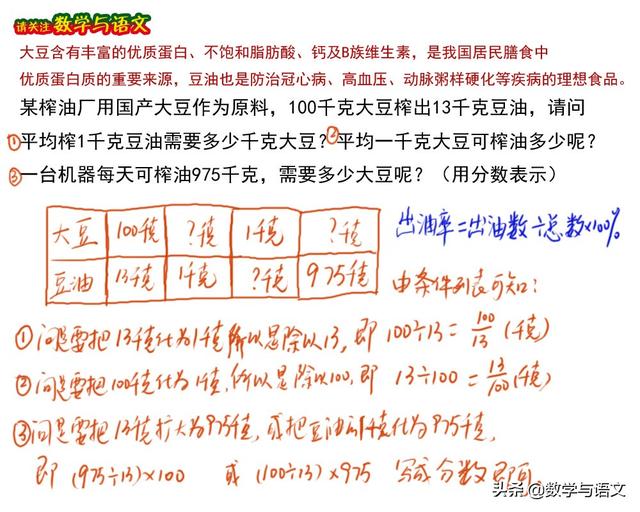 请关注 数学与语文
大豆含有丰富的优质蛋白、不饱和脂肪酸、钙及B族维生素，是我国居民膳食中
优质蛋白质的重要来源，豆油也是防治冠心病、高血压、动脉粥样硬化等疾病的理想食品。
某榨油厂用国产大豆作为原料，100千克大豆榨出13千克豆油，请问
①平均榨1千克豆油需要多少千克大豆？②平均一千克大豆可榨油多少呢？
③一台机器每天可榨油975千克，需要多少大豆呢？（用分数表示）
大豆 100千克 ?千克 1千克 ?千克
豆油 13千克 1千克 ?千克 975千克
出油率=出油数÷总数×100%
由条件列表可知：
①问是要把13千克化为1千克所以是除以13，即 100÷13 = 100/13 (千克)
②问是要把100千克化为1千克，所以是除以100，即 13÷100 = 13/100 (千克)
③问是要把13千克扩大为975千克，或把豆油1千克化为975千克，
即 (975÷13)×100 或 (100÷13)×975 写成分数即可
头条 @数学与语文